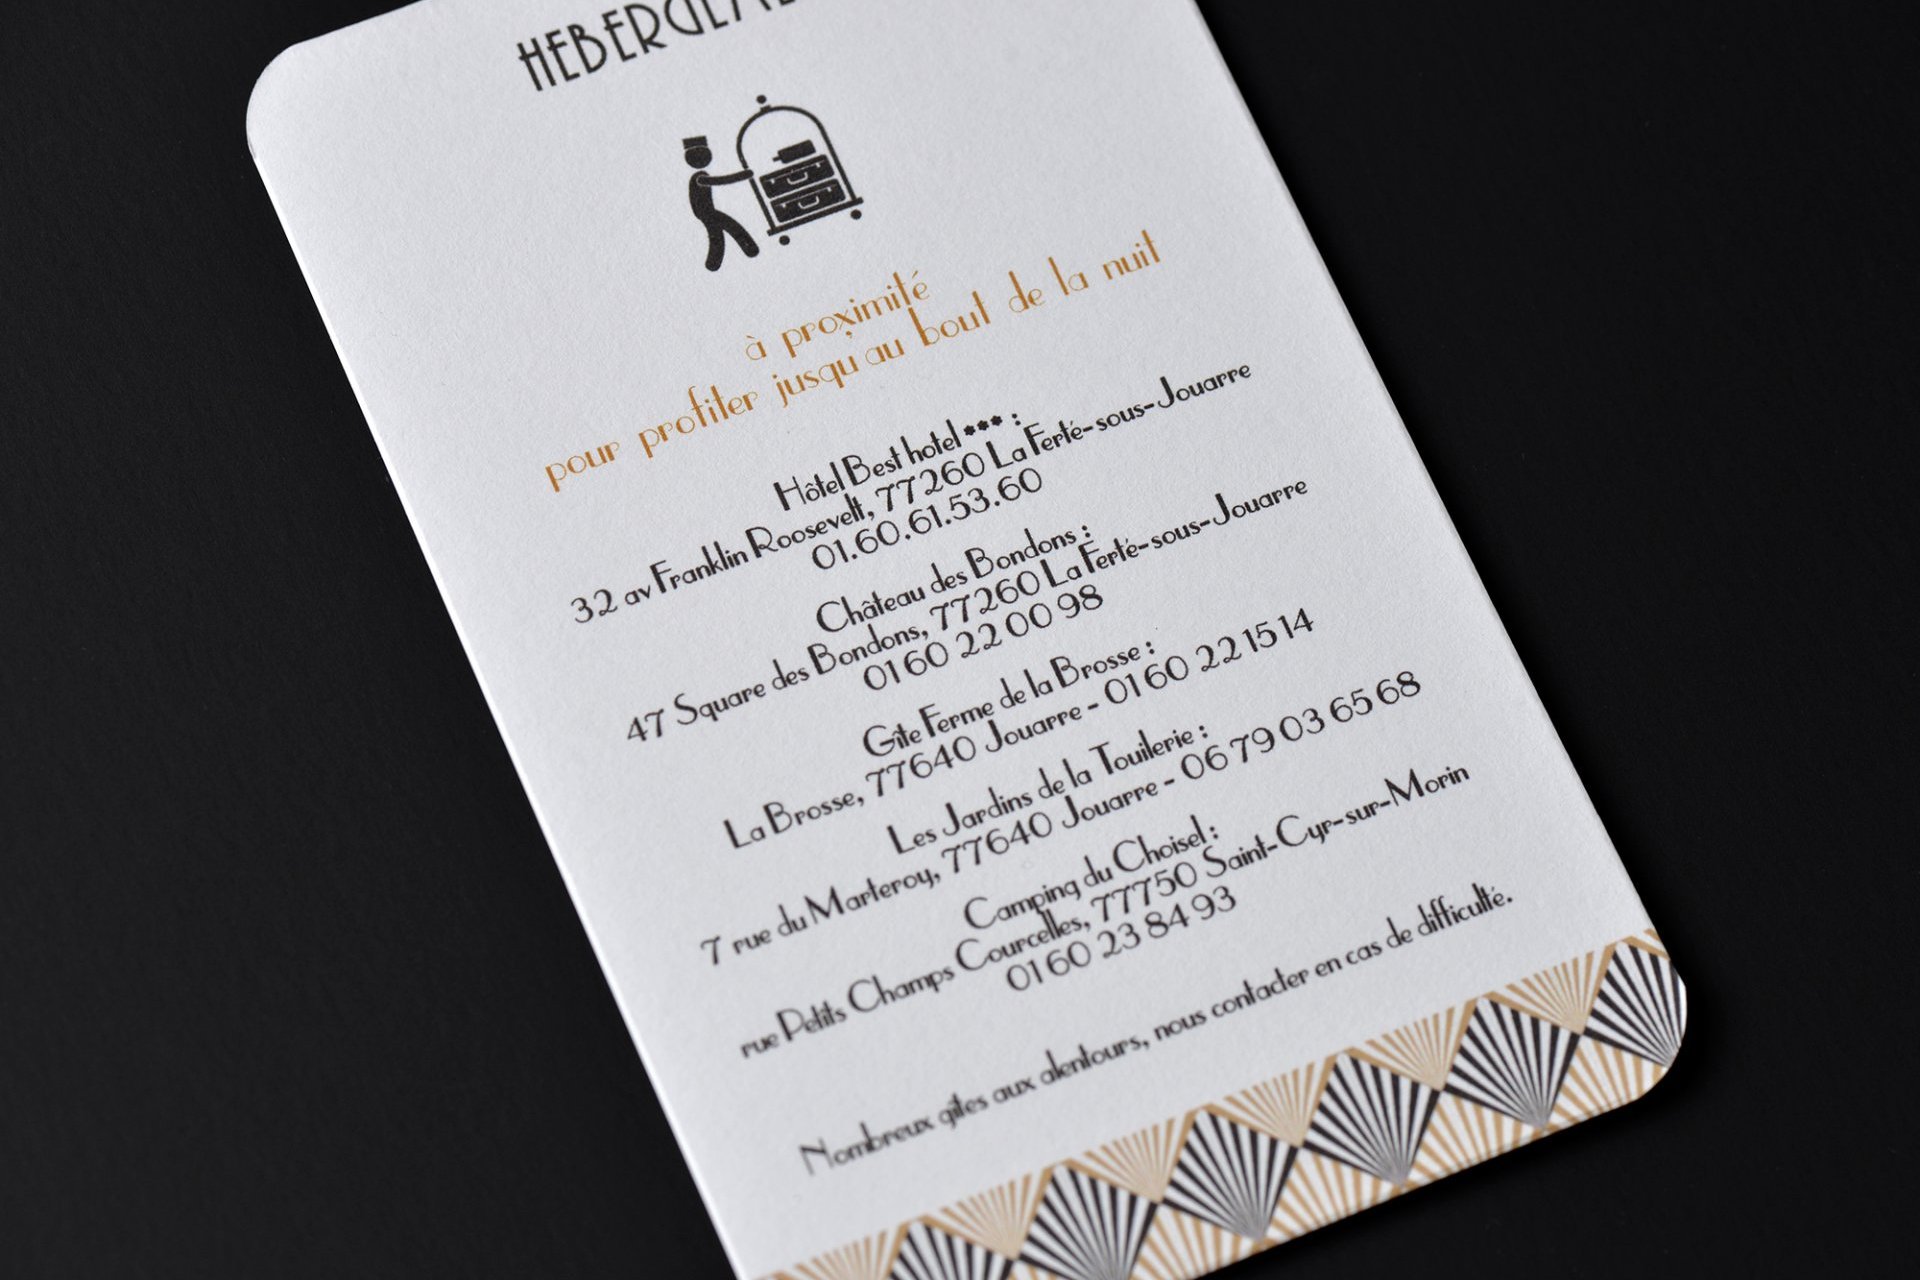 à proximité
pour profiter jusqu'au bout de la nuit
Hôtel Best hotel *** :
32 av Franklin Roosevelt, 77260 La Ferté-sous-Jouarre
01.60.61.53.60
Château des Bondons :
47 Square des Bondons, 77260 La Ferté-sous-Jouarre
01 60 22 00 98
Gîte Ferme de la Brosse :
La Brosse, 77640 Jouarre - 01 60 22 15 14
Les Jardins de la Touilerie :
7 rue du Marteroy, 77640 Jouarre - 06 79 03 65 68
Camping du Choisel :
rue Petits Champs Courcelles, 77750 Saint-Cyr-sur-Morin
01 60 23 84 93
Nombreux gîtes aux alentours, nous contacter en cas de difficulté.